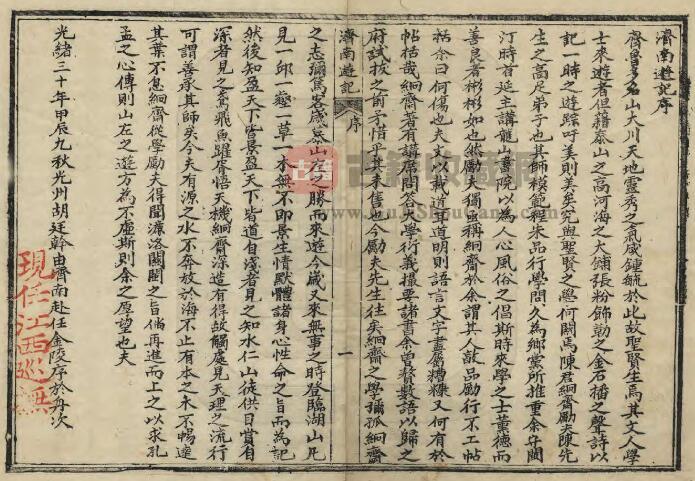 濟南遊記序
齊魯多名山大川天地靈秀之氣咸鍾毓於此故聖賢生焉其文人學
士來遊者但藉泰山之高河海之大鋪張粉飾勒之金石播之聲詩以
記一時之遊踪吁美則美矣究與聖賢之學何關焉陳君絅齋勵夫陳先
生之高足弟子也其師模範程朱品行學問久為鄉黨所推重余守開
汀時首延主講龍山書院以為人心風俗之倡斯時來學之士薰德而
善良者彬彬如也然勵夫獨亟稱絅齋於余謂其人敦品勵行不工帖
括余曰何傷也夫文以載道耳道明則語言文字盡屬糟粕又何有於
帖括哉絅齋著有講席問答及學術義撮要諸書余曾贅數語以歸之
府試拔之前矛惜乎其未售也今勵夫先生往矣絅齋之學彌孤絅齋
濟南遊記 序 一
之志彌篤客歲慕山左之勝而來遊今歲又來無事之時登臨湖山凡
見一邱一壑一草一木無不即景生情默體諸身心性命之旨而為記
然後知盈天下皆景盈天下皆道自淺者見之知水仁山徒供目賞自
深者見之鳶飛魚躍胥悟天機絅齋深造有得故觸處見天理之流行
可謂善承其師矣今夫有源之水不奔放於海不止有本之木不暢達
其葉不息絅齋從學勵夫得聞濂洛關閩之旨倘再進而上之以求孔
孟之心傳則山左之遊方為不虛斯則余之厚望也夫
光緒三十年甲辰九秋光州胡廷幹由濟南赴任金陵序於舟次
現任江西巡撫
古籍收藏網